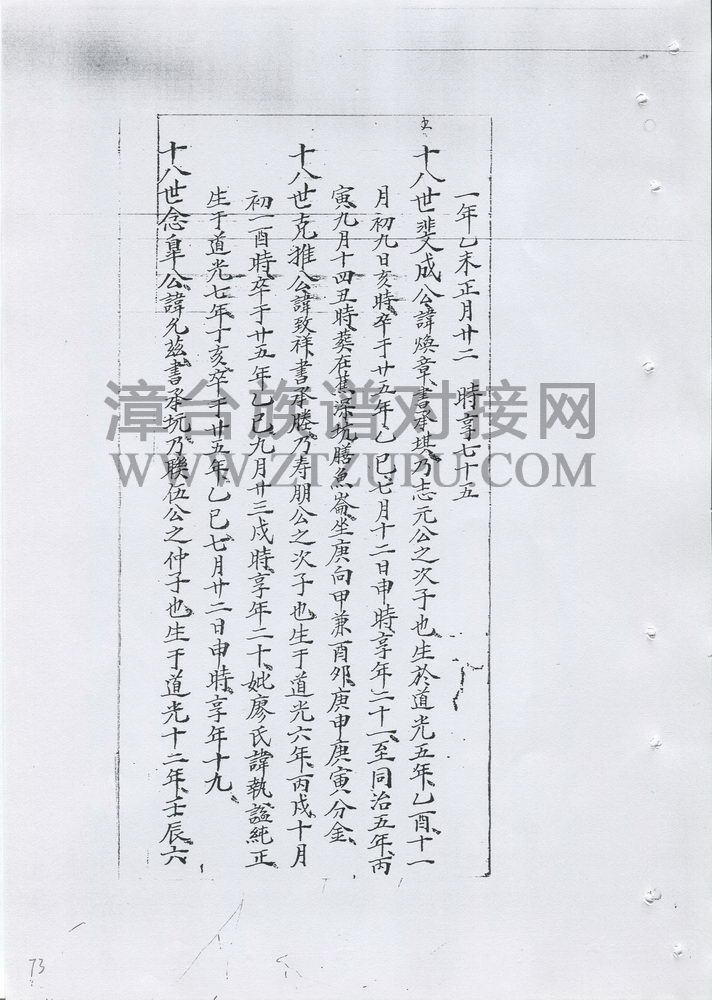 一年乙未正月廿二　時享七十五
十八世斐成公諱煥章書承琪乃志元公之次子也生於道光五年乙酉十一
月初九日亥時卒于廿五年乙巳七月十二日申時享年二十一至同治五年丙
寅九月十四丑時葬在蕉深坑膳魚崙坐庚向甲兼酉卯庚申庚寅分金
十八世克推公諱致祥書承媵乃寿朋公之次子也生于道光六年丙戌十月
初一酉時卒于廿五年乙巳九月廿三戌時享年二十妣廖氏諱執謚純正
生于道光七年丁亥卒于廿五年乙巳七月廿二日申時享年十九
十八世念皐公諱允茲書承坑乃聯伍公之仲子也生于道光十二年壬辰六
漳台族谱对接网
WWW.ZTZUPU.COM
73